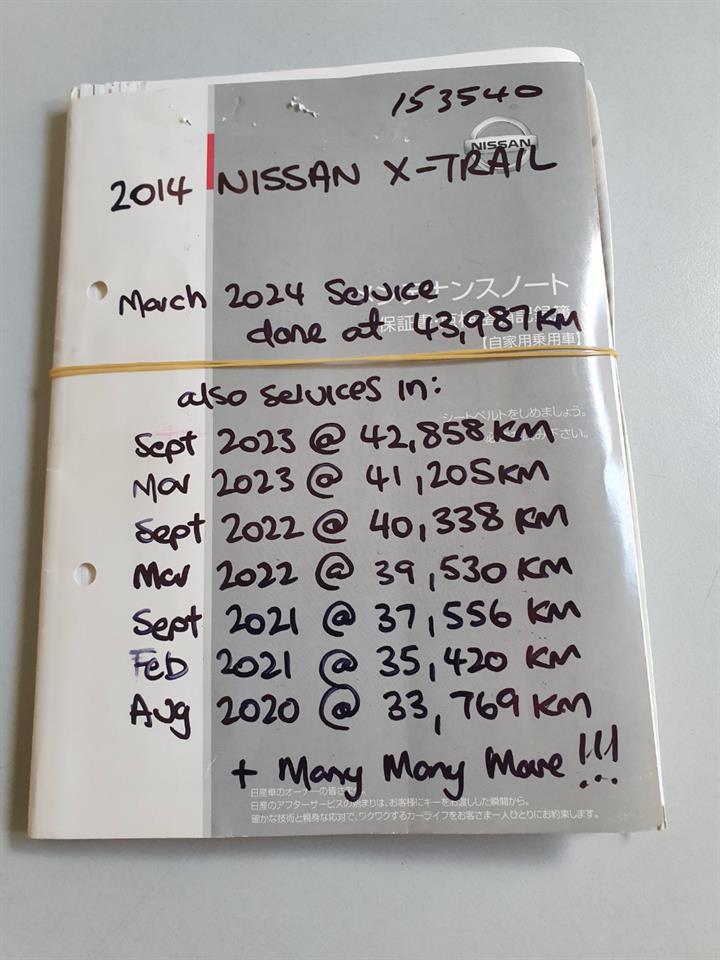 153540
NISSAN
2014 NISSAN X-TRAIL
March 2024 Service
メンテナンスノート
done at 43,987KM
【自家用乗用車】
also services in:
シートベルトをしめましょう。
Sept 2023 @ 42,858 KM
Mar 2023 @ 41,205KM
Sept 2022 @ 40,338 KM
Mar 2022 @ 39,530 KM
Sept 2021 @ 37,556 KM
Feb 2021 @ 35,420 KM
Aug 2020 @ 33,769 KM
+ Many Many More!!!
日産車のオーナーの皆さまへ。
日産のアフターサービスの始まりは、お客様にキーをお渡しした瞬間から。
確かな技術と親身な応対で、ワクワクするカーライフをお客さま一人ひとりにお約束します。